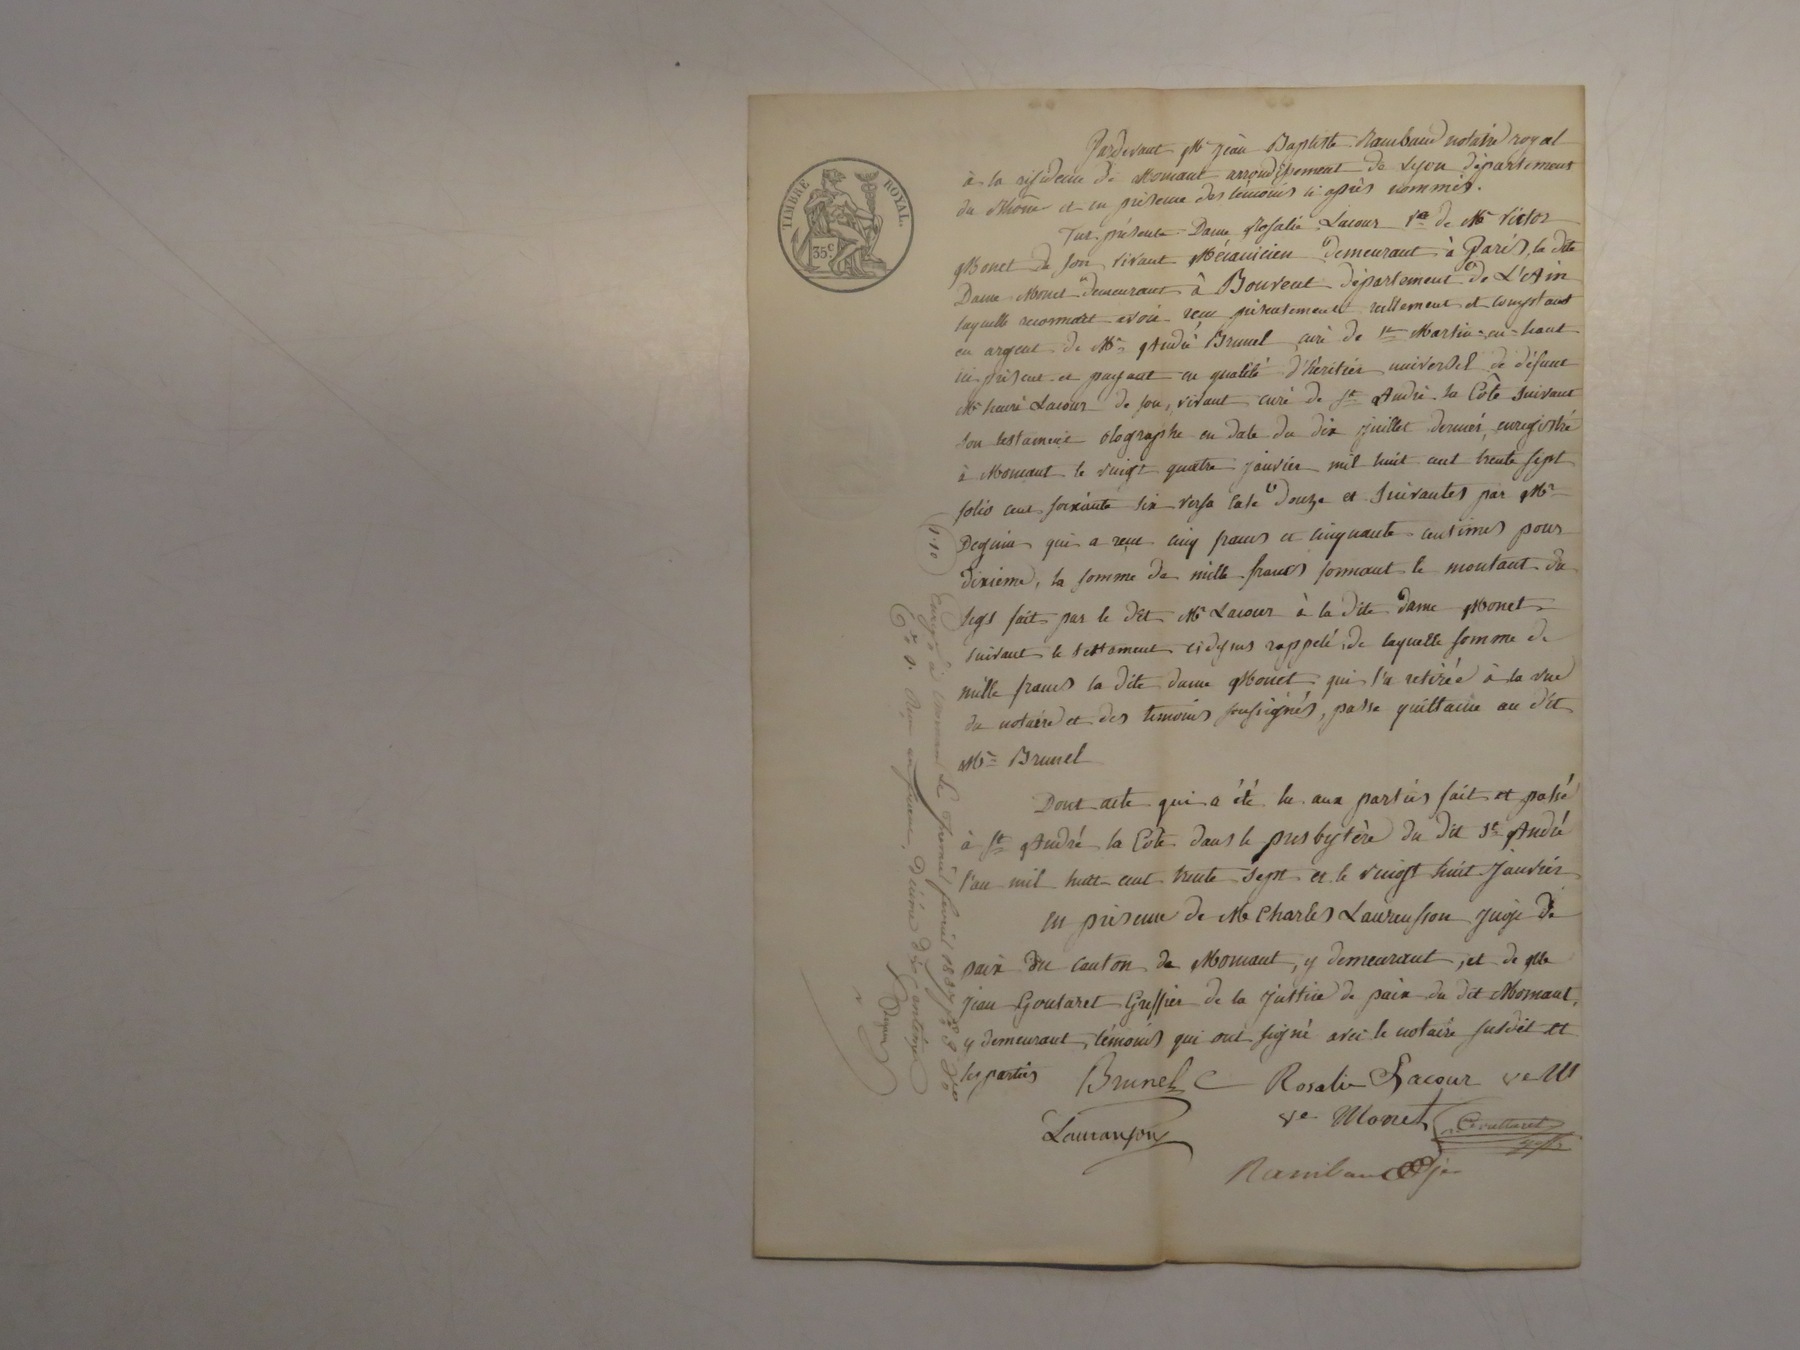 TIMBRE ROYAL
35 c.
Pardevant Me jéan Baptiste Rambaud notaire royal
à la résidence de Mornant arrondissement de Lyon département
du Rhône et en présence des témoins ci après nommés.
Fut présente Dame Rosalie Lacour ve de Mr Victor
Monet de son vivant Mécanicien demeurant à Paris, la dite
Dame Monet demeurant à Bouvent département de L'Ain
laquelle reconnait avoir reçu présentement réellement et comptant
en argent de Mr André Brunel curé de St Martin-en-haut
ici présent et payant en qualité d'héritier universel de défunt
Mr henri Lacour de son vivant curé de St André la Côte suivant
son testament olographe en date du dix juillet dernier, enregistré
à Mornant le vingt quatre janvier mil huit cent trente sept
folio cent soixante six verso case douze et suivantes par Mr
Deguin qui a reçu cinq francs et cinquante centimes pour
dixième, la somme de mille francs formant le montant du
legs fait par le dit Mr Lacour à la dite dame Monet
suivant le testament cidessus rappelé, de laquelle somme de
mille francs la dite dame Monet, qui l'a retirée à la vue
du notaire et des témoins soussignés, passe quittance au dit
Mr Brunel
Dont acte qui a été lu aux parties fait et passé
à St André la Côte dans le presbytère du dit St André
l'an mil huit cent trente sept et le vingt huit Janvier
en présence de Me Charles Laurenson juge de
paix du canton de Mornant, y demeurant, et de Me
jean Goutaret Greffier de la justice de paix du dit Mornant,
y demeurant, témoins qui ont signé avec le notaire susdit et
les parties
Brunel c
Rosalie Lacour ve M
ve Monet
Lauranson
Goutaret
greff
Rambaud
(1.10)
Enregé à Mornant le premier février 1837 fo
Reçu un franc, dixième dix centimes
Deguin